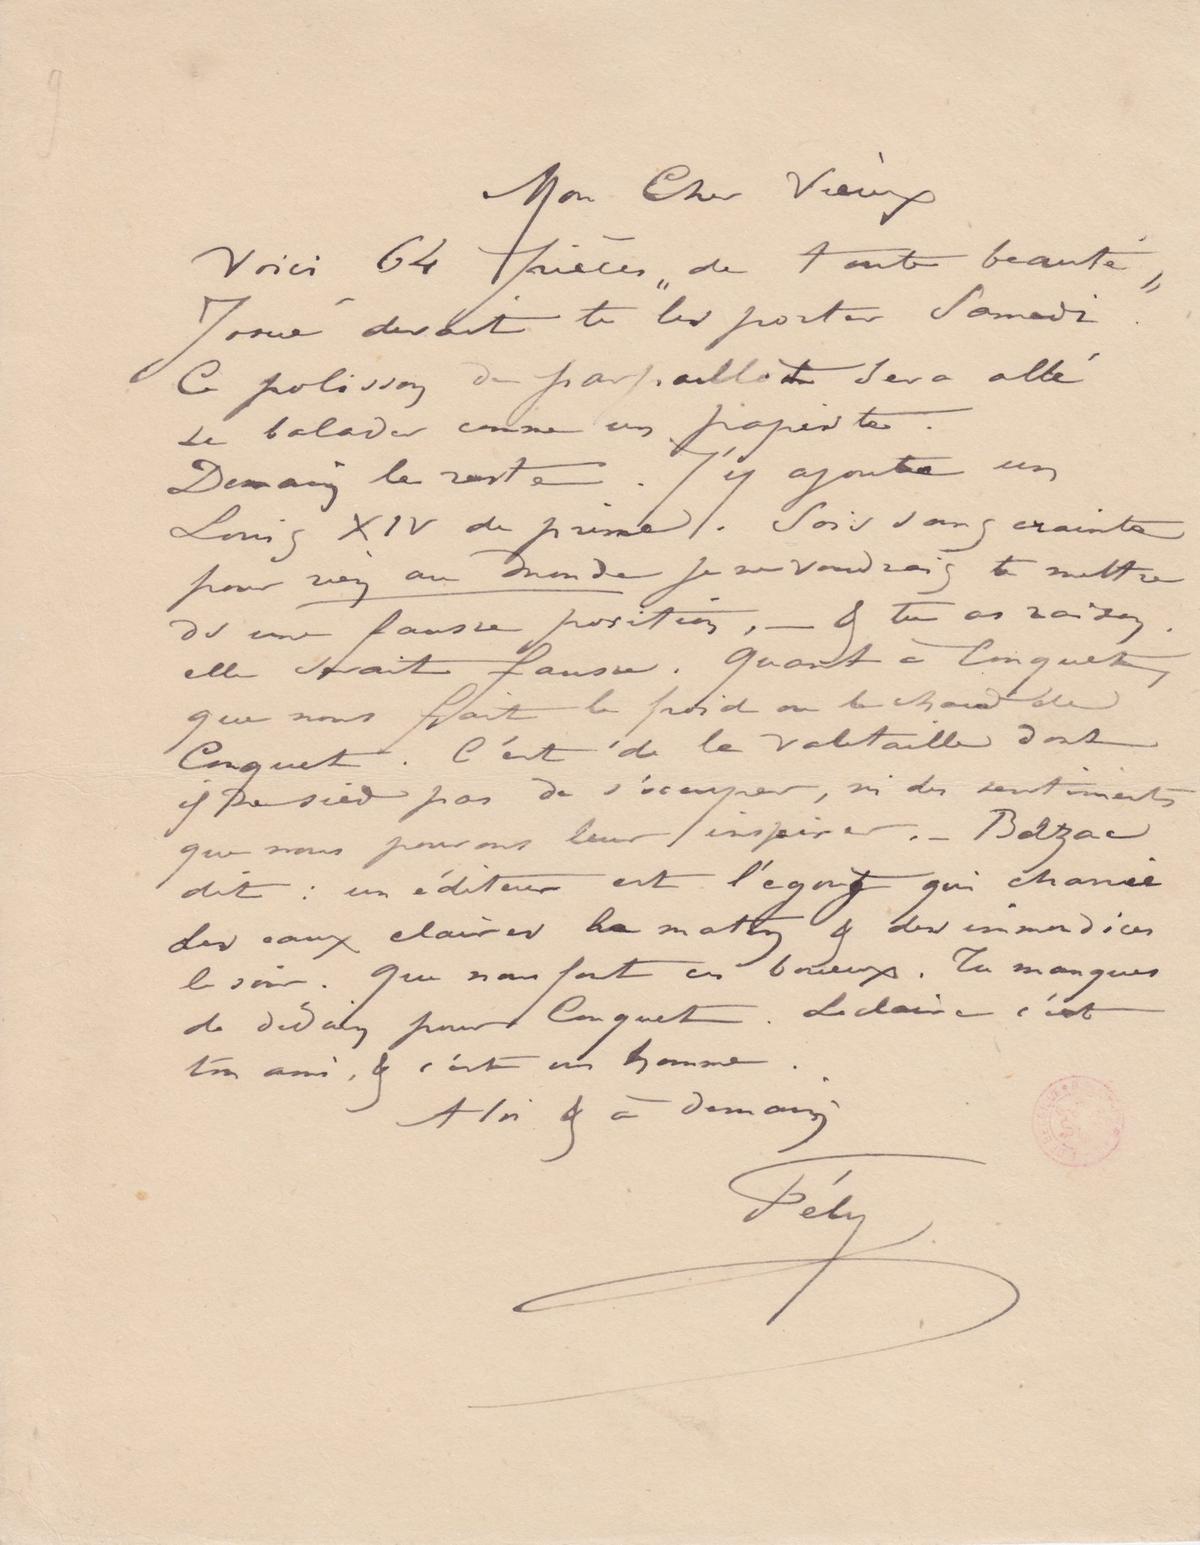 Mon Cher Vieux
Voici 64 pièces „ de toute beauté „
Josué devait te les porter Samedi.
Ce polisson de parpaillot sera allé
se balader comme un papiste.
Demain le reste. J'y ajoute un
Louis XIV de prime. Sois sans crainte
pour rien au monde je ne voudrais te mettre
ds une fausse position, — & tu as raison.
elle serait fausse. Quant à Conquet,
que nous fait le froid ou le chaud de
Conquet. C'est de la valetaille dont
il ne sied pas de s'occuper, ni des sentiments
que nous pouvons leur inspirer. — Balzac
dit : un éditeur est l'egout qui charrie
des eaux claires le matin & des immondices
le soir. Que nous font ces boueux. Tu manques
de dédain pour Conquet. Leclaire c'est
ton ami, & c'est un homme.
A toi & à demain
Fély